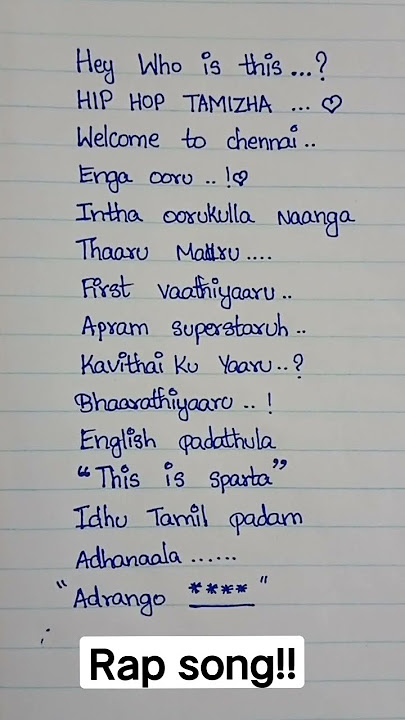 Hey Who is this ...?
HIP HOP TAMIZHA ... ♡
Welcome to chennai ..
Enga ooru .. !♡
Intha oorukulla Naanga
Thaaru Mattru ....
First vaathiyaaru ..
Apram superstaruh ..
Kavithai Ku Yaaru ..?
Bhaarathiyaaru .. !
English padathula
“This is sparta”
Idhu Tamil padam
Adhanaala ......
“Adrango **** ”
Rap song!!